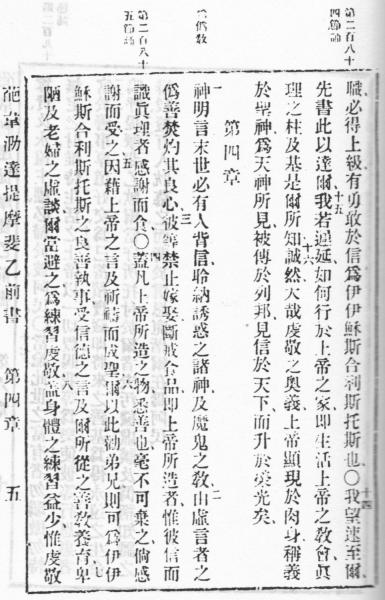 第二百八十
四節誦
職必得上級有勇敢於信爲伊伊穌斯合利斯托斯也〇十四我望速至爾
先書此以達爾十五我若遲延如何行於上帝之家即生活上帝之敎會眞
理之柱及基是爾所知十六誠然大哉虔敬之奧義上帝顯現於肉身稱義
於聖神、爲天神所見、被傳於列邦、見信於天下、而升於榮光矣、
第四章
僞敎
一神明言末世必有人背信、聆納誘惑之諸神及魔鬼之敎二由虛言者之
僞善焚灼其良心、三彼等禁止嫁娶斷戒食品、即上帝所造者惟彼信而
第二百八十
五節誦
識眞理者感謝而食〇四蓋凡上帝所造之物悉善也毫不可棄之倘感
謝而受之五因藉上帝之言及祈禱而成聖六爾以此勸弟兄則可爲伊伊
穌斯合利斯托斯之良善執事受信德之言及爾所從之善敎養育七卑
陋及老婦之虛談爾當避之爲練習虔敬八蓋身體之練習益少惟虔敬
葩韋泐達提摩斐乙前書 第四章 五